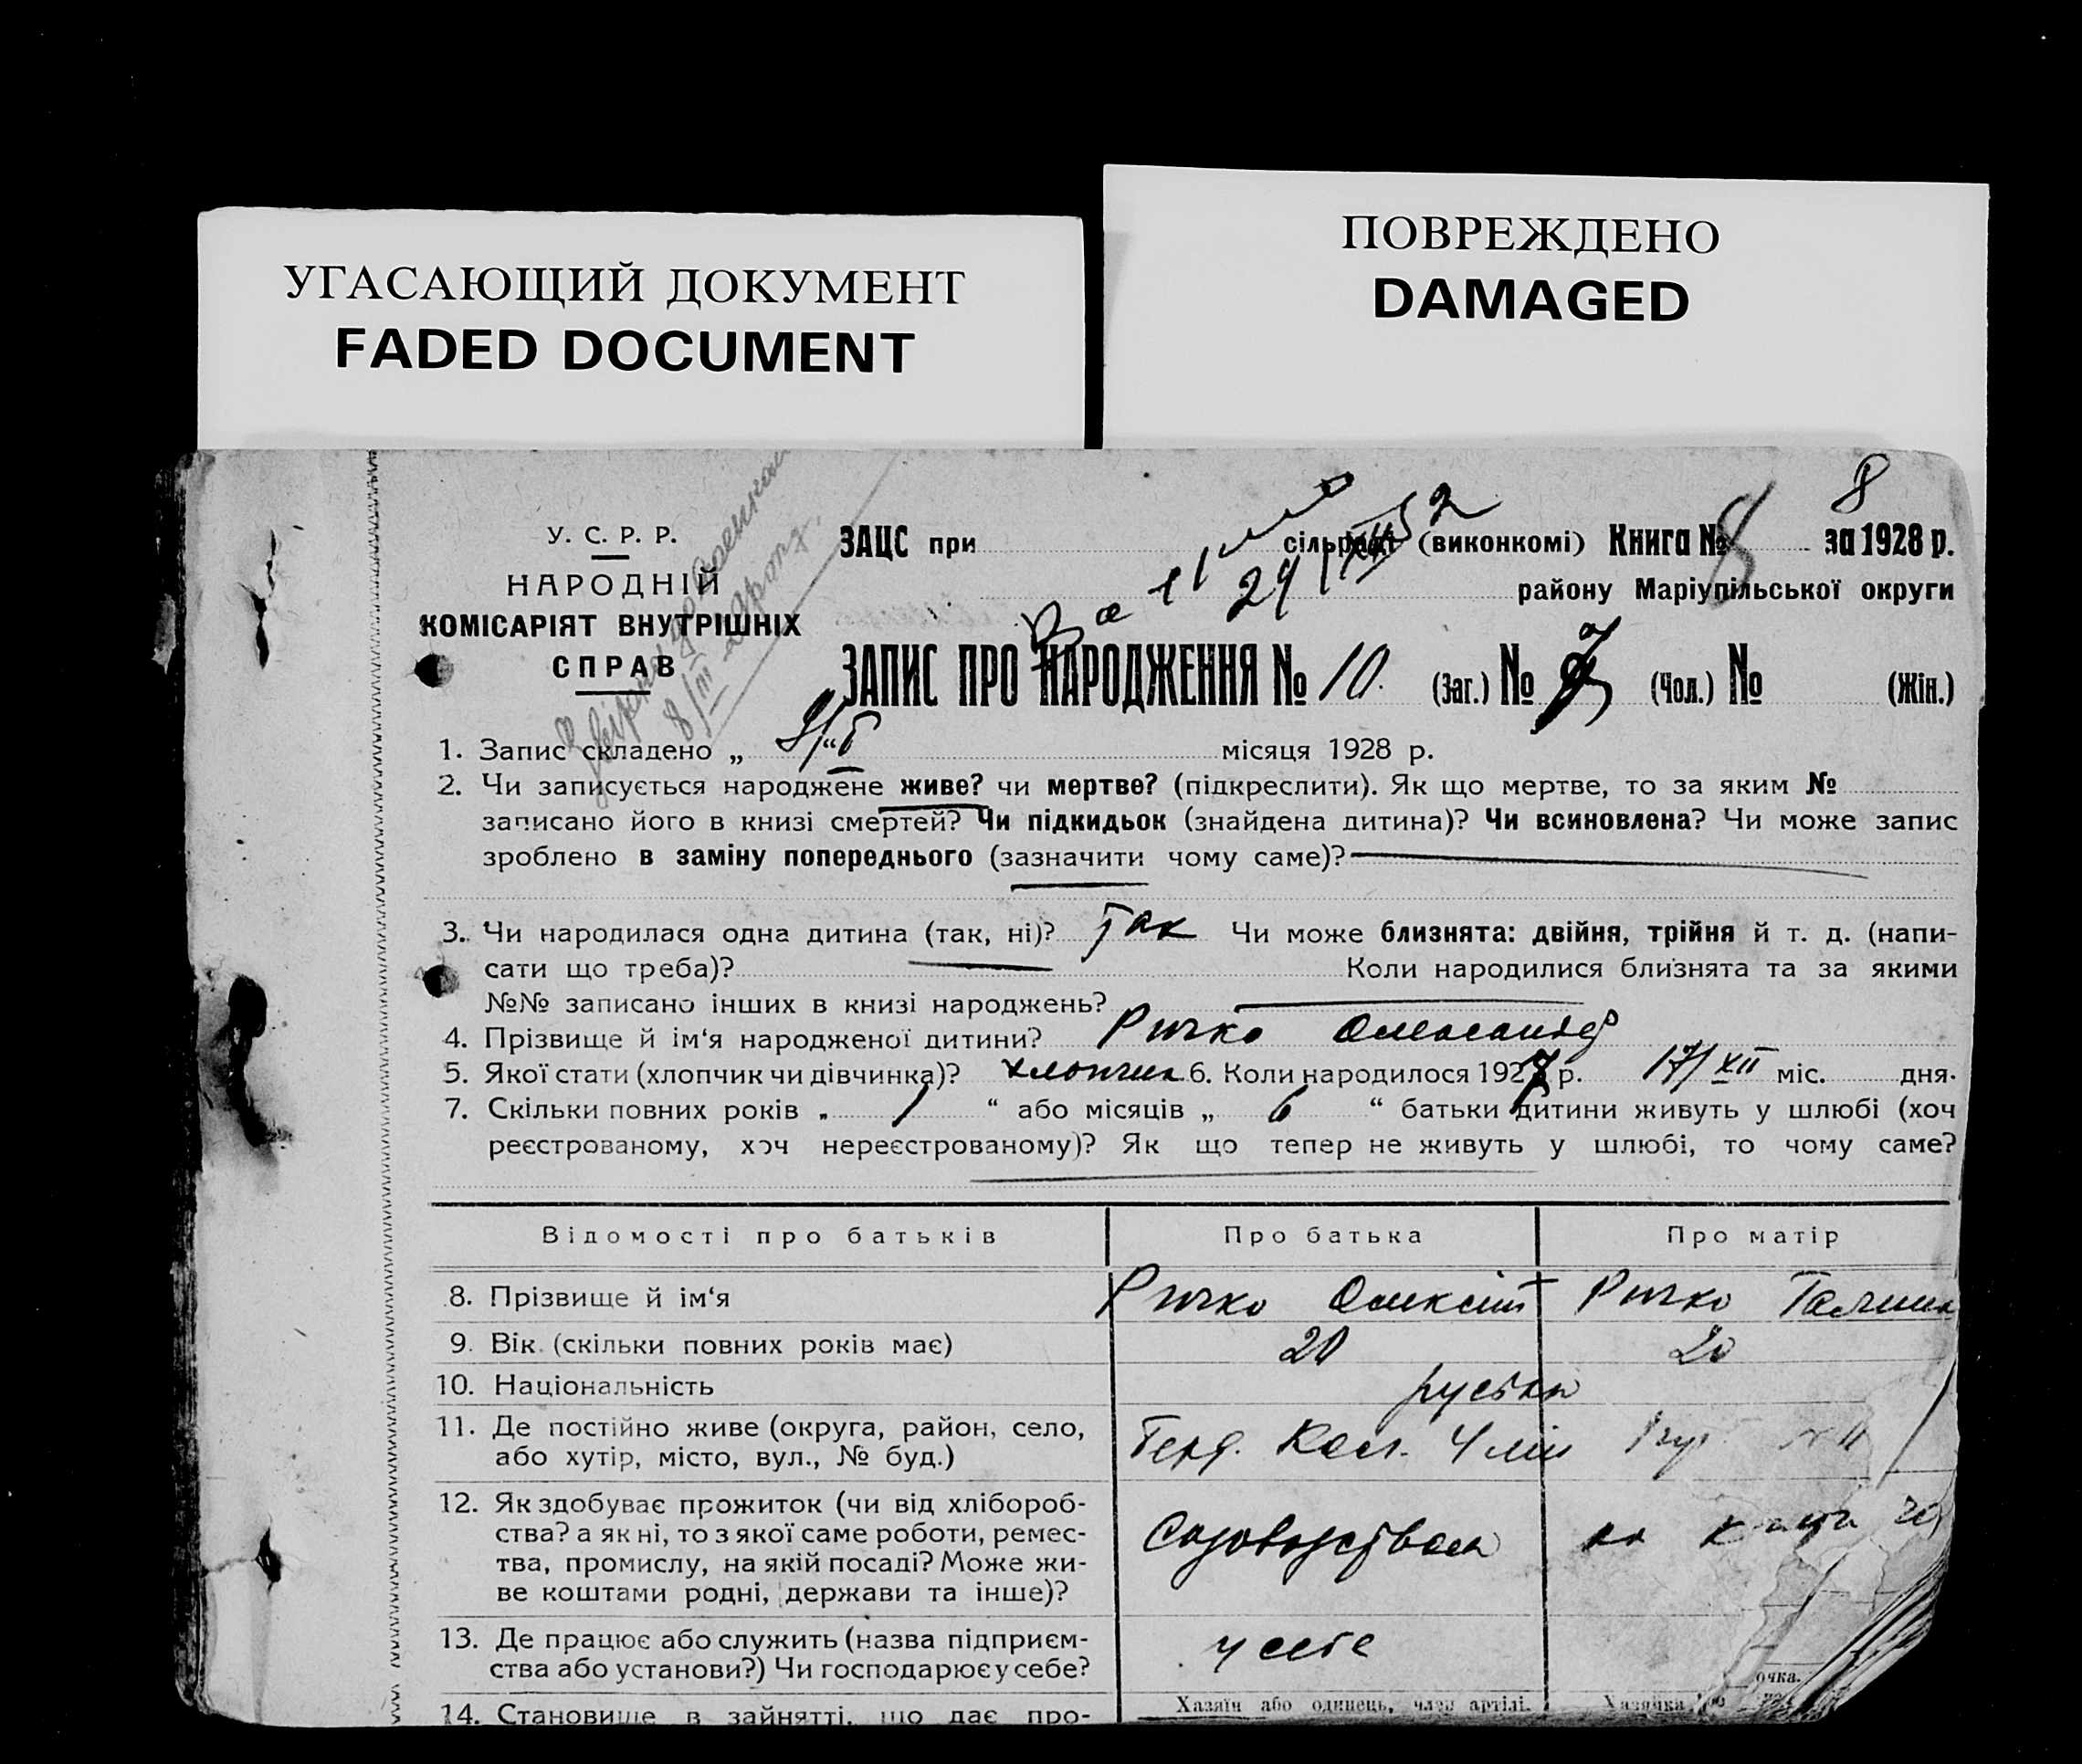 УГАСАЮЩИЙ ДОКУМЕНТ
FADED DOCUMENT
ПОВРЕЖДЕНО
DAMAGED
8
У. С. Р. Р.
НАРОДНІЙ
КОМІСАРІЯТ ВНУТРІШНІХ
СПРАВ
ЗАЦС при сільраді (виконкомі) Книга № 8 за 1928 р.
району Маріупільської округи
ЗАПИС ПРО НАРОДЖЕННЯ № 10. (Заг.) № 7 (Чол.) № (Жін.)
1. Запис складено „ “ місяця 1928 р.
2. Чи записується народжене живе? чи мертве? (підкреслити). Як що мертве, то за яким №
записано його в книзі смертей? Чи підкидьок (знайдена дитина)? Чи всиновлена? Чи може запис
зроблено в заміну попереднього (зазначити чому саме)?
3. Чи народилася одна дитина (так, ні)? Так Чи може близнята: двійня, трійня й т. д. (напи-
сати що треба)? Коли народилися близнята та за якими
№№ записано інших в книзі народжень?
4. Прізвище й ім‘я народженої дитини? Ричко Олександр
5. Якої стати (хлопчик чи дівчинка)? хлопчик 6. Коли народилося 1927 р. 17/XII міс. дня.
7. Скільки повних років „ 1 “ або місяців „ 6 “ батьки дитини живуть у шлюбі (хоч
реєстрованому, хоч нереєстрованому)? Як що тепер не живуть у шлюбі, то чому саме?
Відомості про батьків Про батька Про матір
8. Прізвище й ім‘я Ричко Ричко Галина
9. Вік (скільки повних років має) 20 20
10. Національність руські
11. Де постійно живе (округа, район, село,
або хутір, місто, вул., № буд.)
12. Як здобуває прожиток (чи від хлібороб-
ства? а як ні, то з якої саме роботи, ремес-
тва, промислу, на якій посаді? Може жи-
ве коштами родні, держави та інше)?
Садоводством
13. Де працює або служить (назва підприєм-
ства або установи?) Чи господарює у себе?
у себе
14. Становище в зайнятті, що дає про-
Хазяїн або одинець, член артілі.